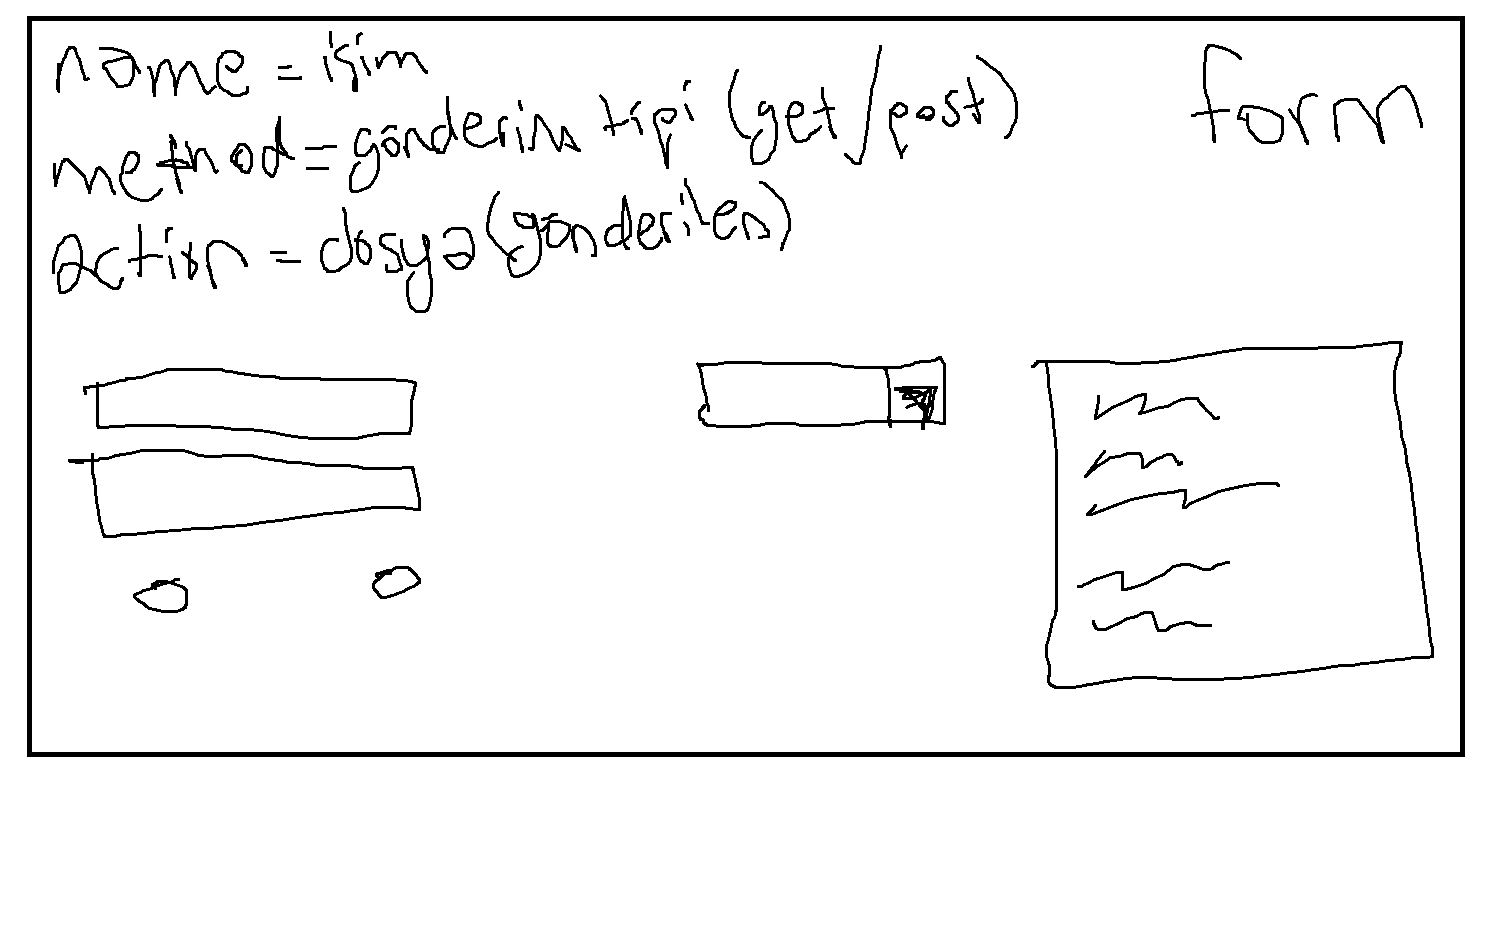 name = isim
method = gönderim tipi (get/post)
action = dosya (gönderilen)
form